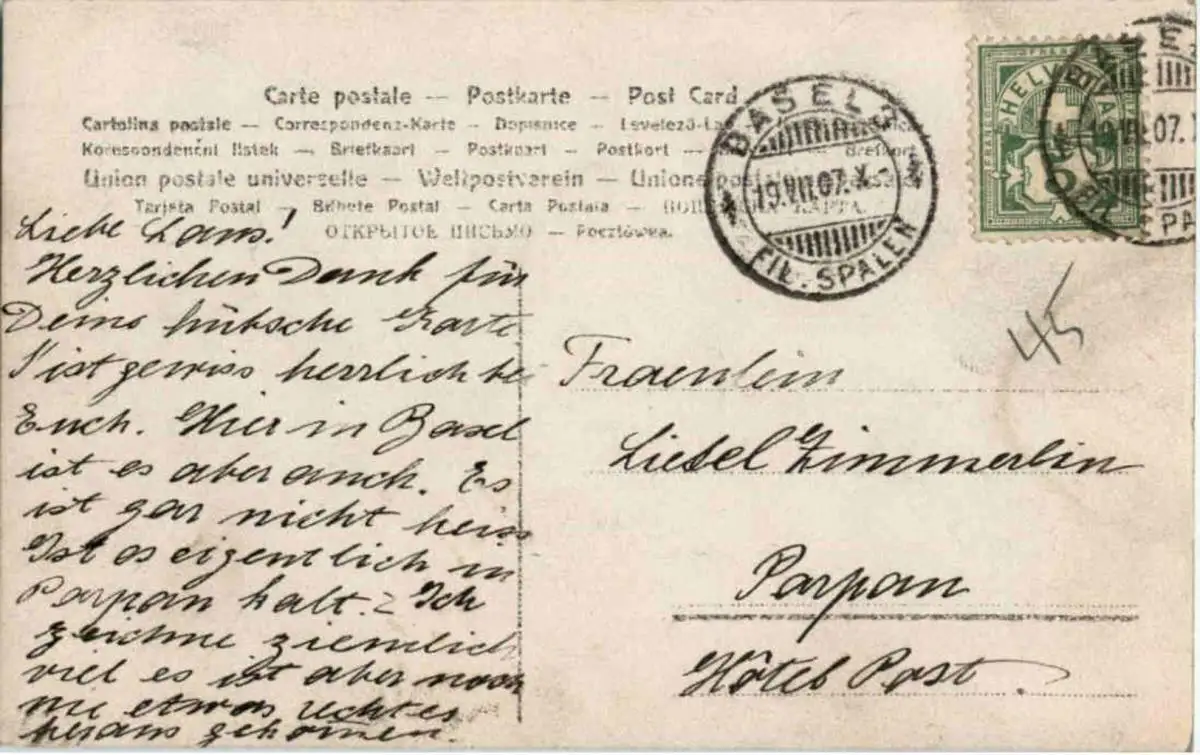 Carte postale — Postkarte — Post Card
Cartolina postale — Correspondenz-Karte — Dopisnice — Levelező-La
Korespondenční lístek — Briefkaart — Postkaart — Postkort — Brefkort
Union postale universelle — Weltpostverein — Unione postale
Tarjeta Postal — Bilhete Postal — Carta Postala — КАРТА.
ОТКРЫТОЕ ПИСЬМО — Pocztówka.
BASEL 2
19.VII.07.X-
FIL. SPALEN
HELVETIA
19.VII.07.
45
Liebe Laus!
Herzlichen Dank für
Deine hübsche Karte
S'ist gewiss herrlich be
Euch. Hier in Basel
ist es aber auch. Es
ist gar nicht heiss
Ist es eigentlich in
Parpan kalt? Ich
zeichne ziemlich
viel es ist aber noch
nie etwas rechtes
heraus gekommen.
Fraenlein
Liesel Zimmerlin
Parpan
Hôtel Post.